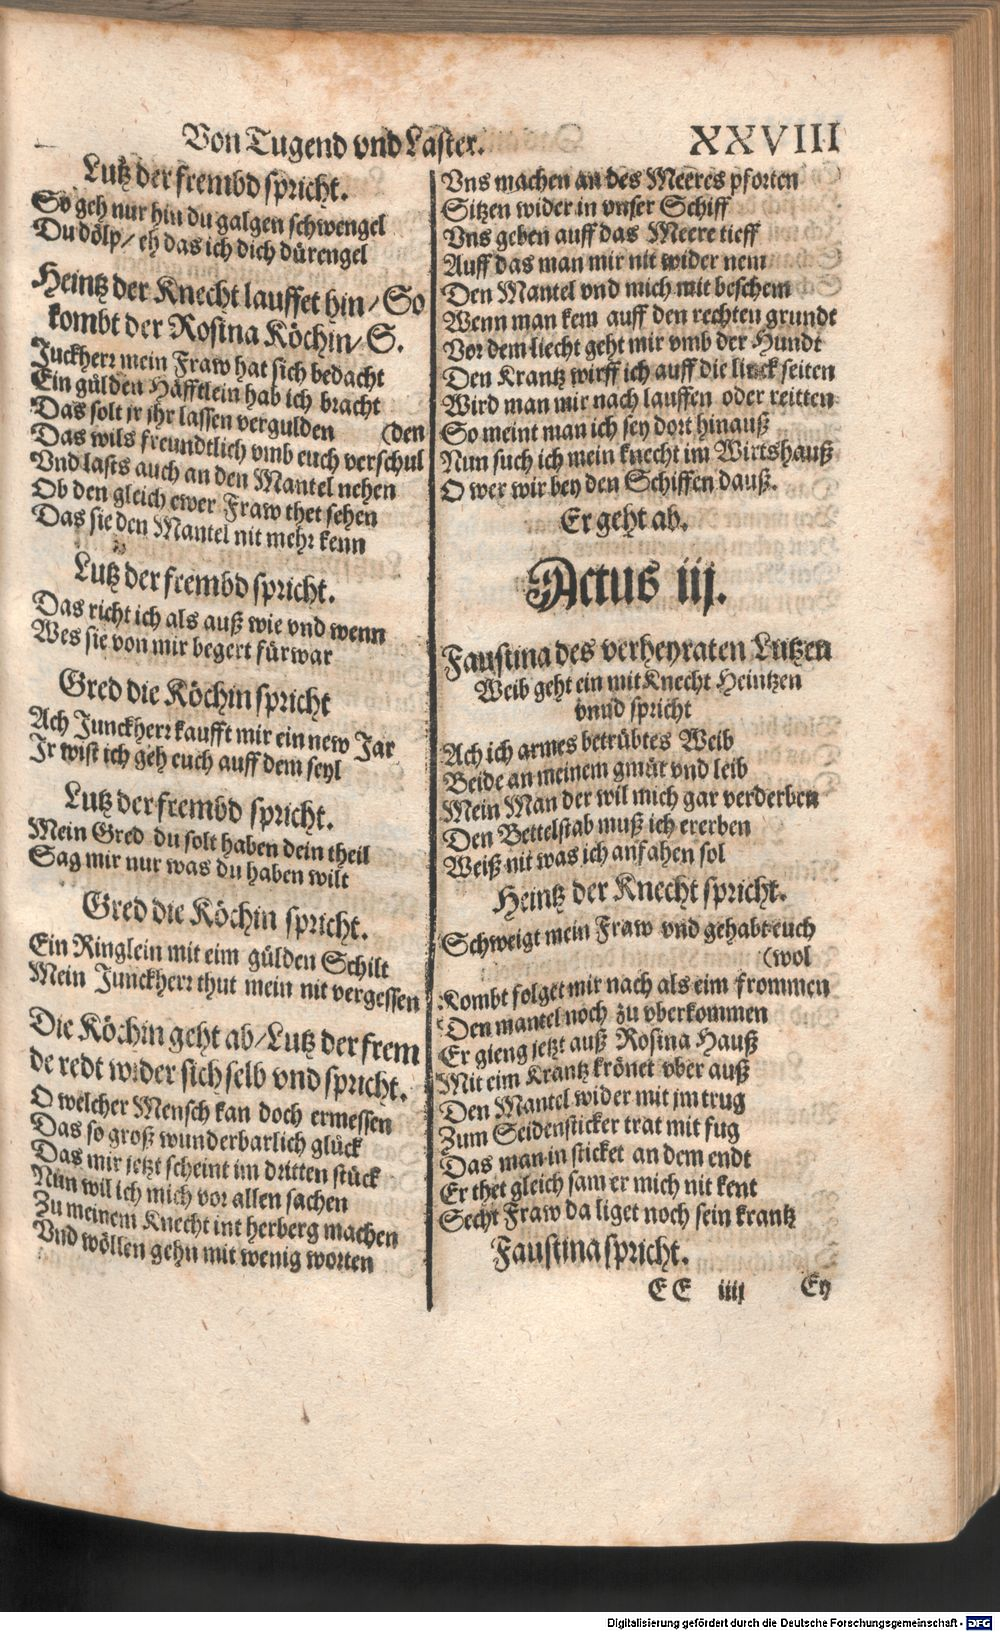 Von Tugend vnd Laster. XXVIII
Lutz der frembd spricht.
So geh nur hin du galgen schwengel
Du dölp/ eh das ich dich dürengel
Heintz der Knecht lauffet hin/ So
kombt der Rosina Köchin/ S.
Juckherr mein Fraw hat sich bedacht
Ein gülden Häfftlein hab ich bracht
Das solt jr jhr lassen vergulden (den
Das wils freundtlich vmb euch verschul
Vnd lasts auch an den Mantel nehen
Ob den gleich ewer Fraw thet sehen
Das sie den Mantel nit mehr kenn
Lutz der frembd spricht.
Das richt ich als auß wie vnd wenn
Wes sie von mir begert fürwar
Gred die Köchin spricht
Ach Junckherr kaufft mir ein new Jar
Jr wist ich geh euch auff dem seyl
Lutz der frembd spricht.
Mein Gred du solt haben dein theil
Sag mir nur was du haben wilt
Gred die Köchin spricht.
Ein Ringlein mit eim gülden Schilt
Mein Junckherr thut mein nit vergessen
Die Köchin geht ab/ Lutz der frem
de redt wider sich selb vnd spricht.
O welcher Mensch kan doch ermessen
Das so groß wunderbarlich glück
Das mir jetzt scheint im dritten stück
Nun wil ich mich vor allen sachen
Zu meinem Knecht int herberg machen
Vnd wöllen gehn mit wenig worten
Vns machen an des Meeres pforten
Sitzen wider in vnser Schiff
Vns geben auff das Meere tieff
Auff das man mir nit wider nem
Den Mantel vnd mich mit beschem
Wenn man kem auff den rechten grundt
Vor dem liecht geht mir vmb der Hundt
Den Krantz wirff ich auff die linck seiten
Wird man mir nach lauffen oder reitten
So meint man ich sey dort hinauß
Nun such ich mein knecht im Wirtshauß
O wer wir bey den Schiffen dauß.
Er geht ab.
Actus iij.
Faustina des verheyraten Lutzen
Weib geht ein mit Knecht Heintzen
vnnd spricht
Ach ich armes betrübtes Weib
Beide an meinem gmüt vnd leib
Mein Man der wil mich gar verderben
Den Bettelstab muß ich ererben
Weiß nit was ich anfahen sol
Heintz der Knecht spricht.
Schweigt mein Fraw vnd gehabt euch
(wol
Kombt folget mir nach als eim frommen
Den mantel noch zu vberkommen
Er gieng jetzt auß Rosina Hauß
Mit eim Krantz krönet vber auß
Den Mantel wider mit jm trug
Zum Seidensticker trat mit fug
Das man in sticket an dem endt
Er thet gleich sam er mich nit kent
Secht Fraw da liget noch sein krantz
Faustina spricht.
EE iiij Ey
Digitalisierung gefördert durch die Deutsche Forschungsgemeinschaft - DFG